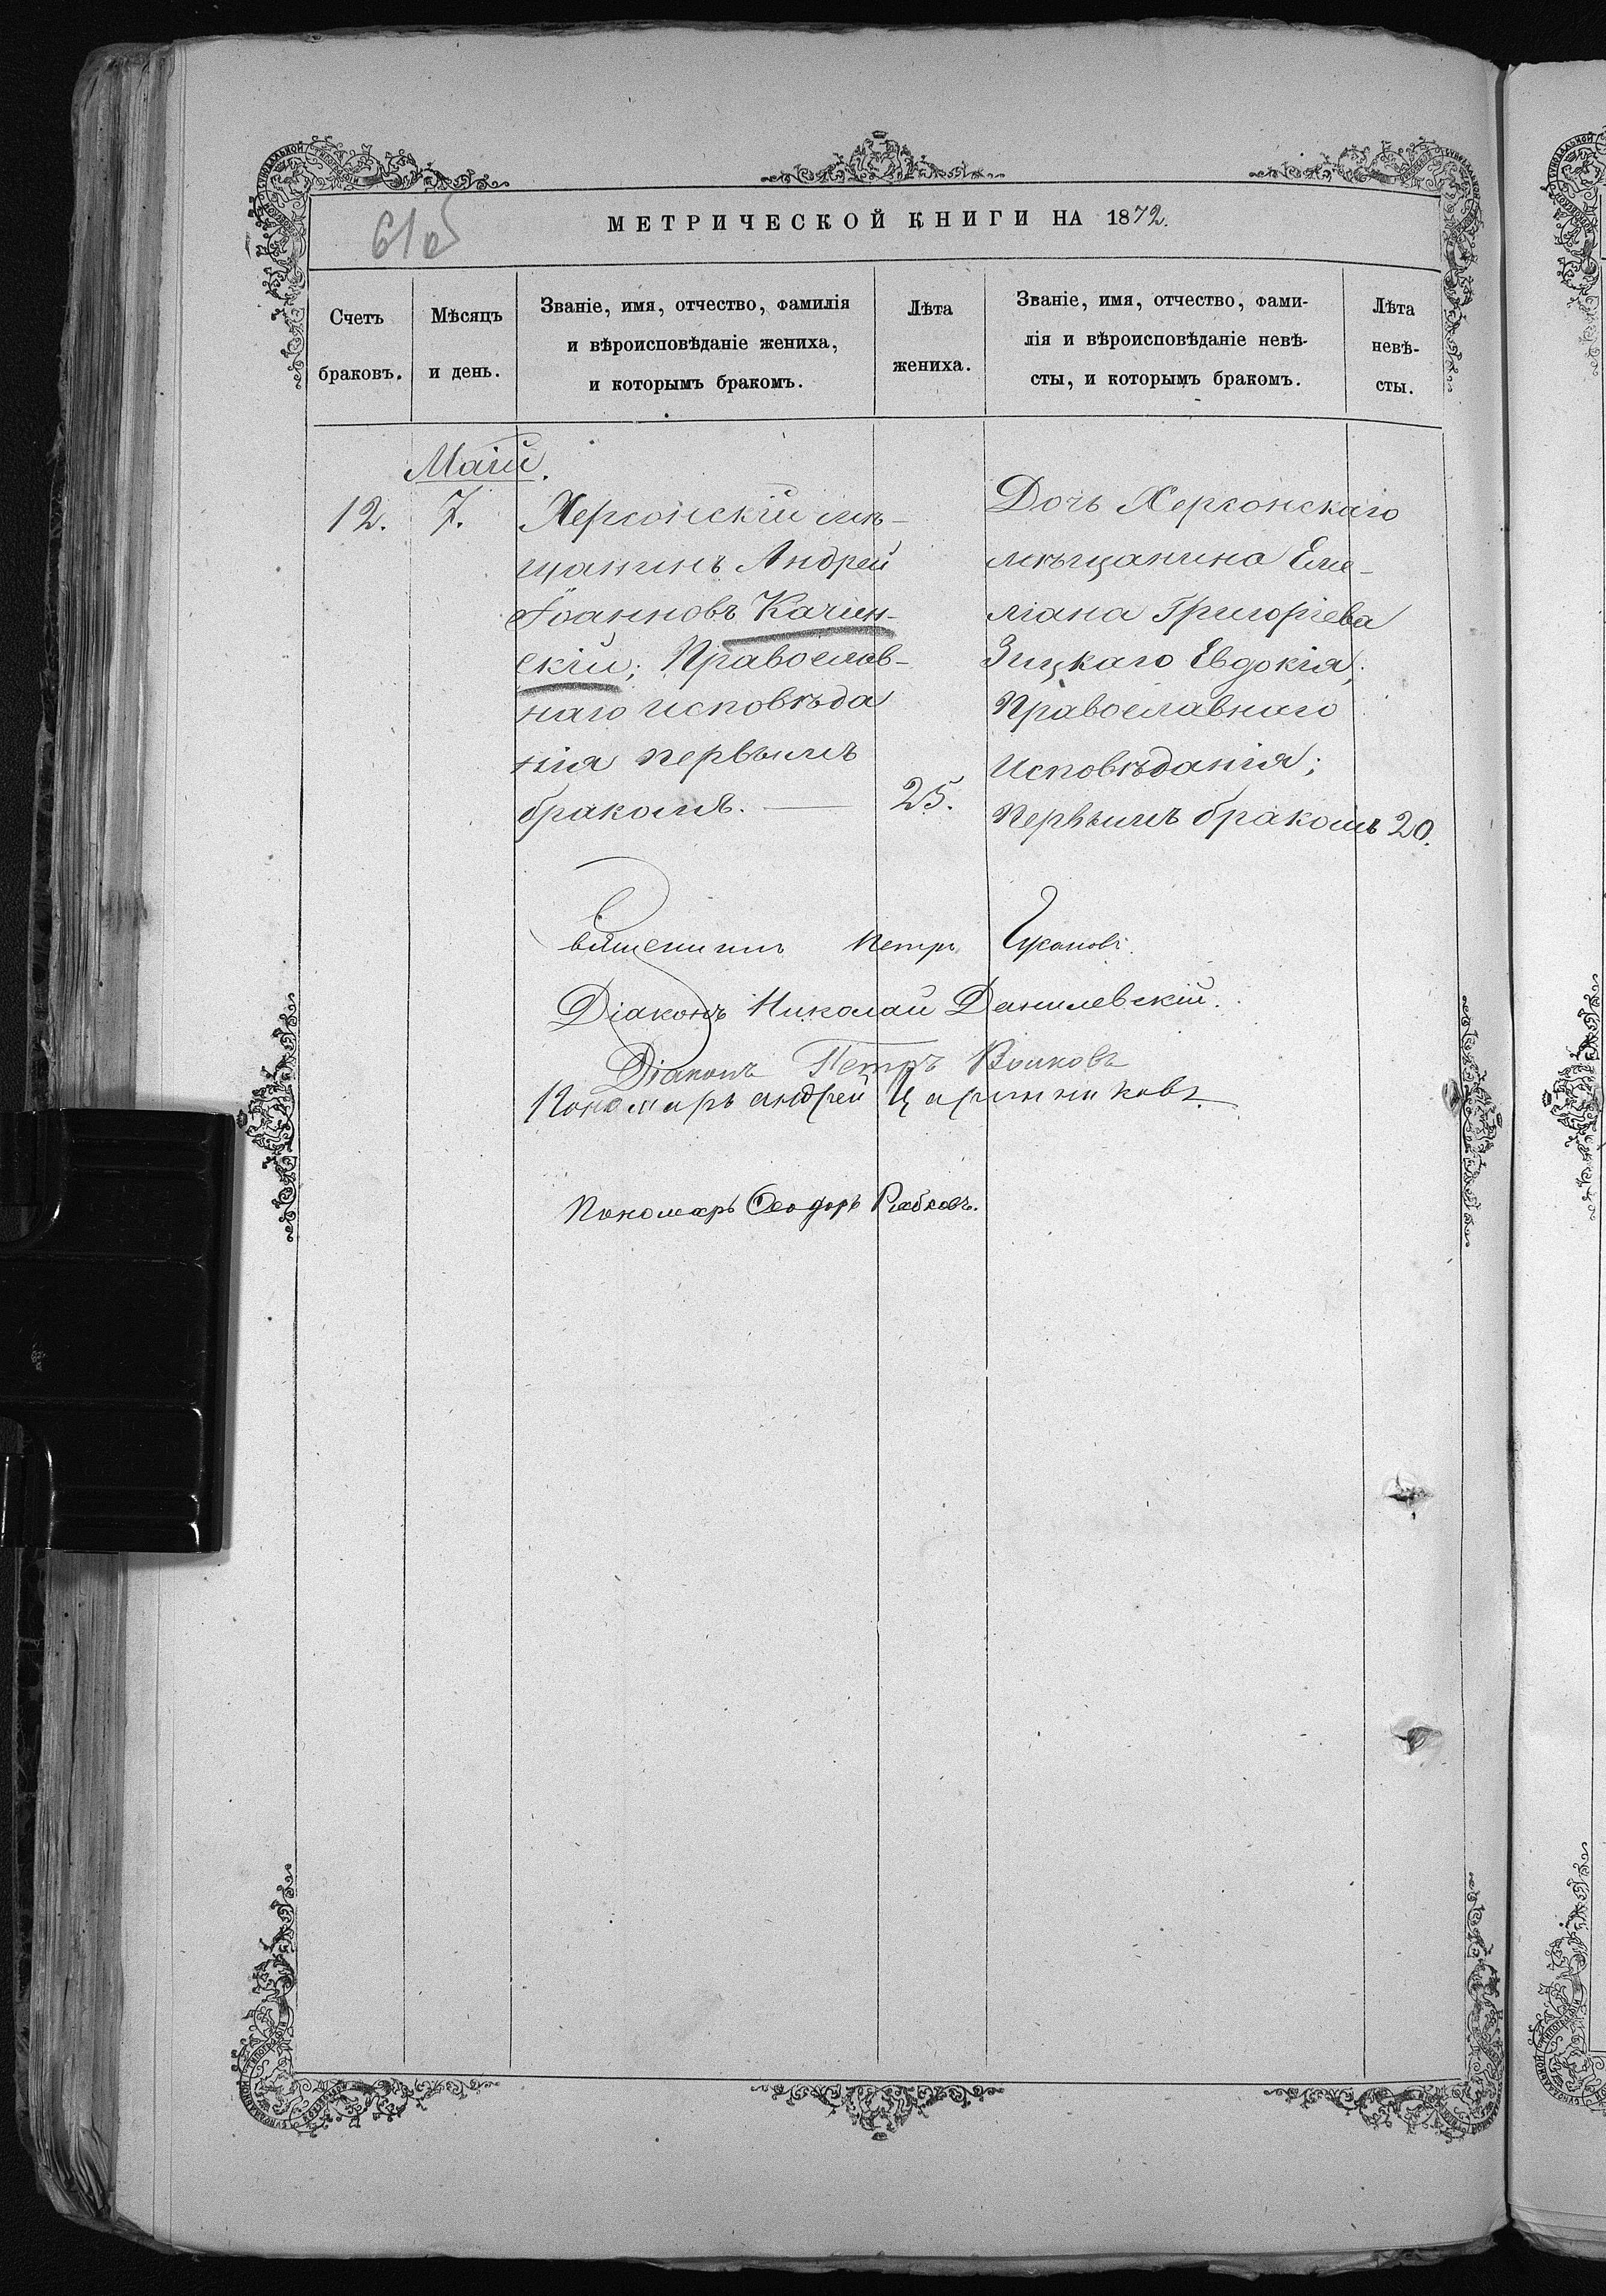 61об
МЕТРИЧЕСКОЙ КНИГИ НА 1872.
Счетъ браковъ.
Мѣсяцъ и день.
Званіе, имя, отчество, фамилія
и вѣроисповѣданіе жениха,
и которымъ бракомъ.
Лѣта жениха.
Званіе, имя, отчество, фами-
лія и вѣроисповѣданіе невѣ-
сты, и которымъ бракомъ.
Лѣта невѣ-
сты.
Маій.
12. 7.
Херсонскій мѣ-
щанинъ Андрей
Іоанновъ Качин-
скій; Православ-
наго исповѣда
нія первымъ
бракомъ. — 25.
Дочь Херсонскаго
мѣщанина Еме-
ліана Григоріева
Зицкаго Евдокія;
Православнаго
Исповѣданія;
Первымъ бракомъ 20.
Священникъ Петръ Чукановъ.
Діаконъ Николай Данилевскій.
Діаконъ Петръ Волковъ
Пономарь Андрей Царинниковъ.
Пономарь Ѳеодоръ Рябковъ.